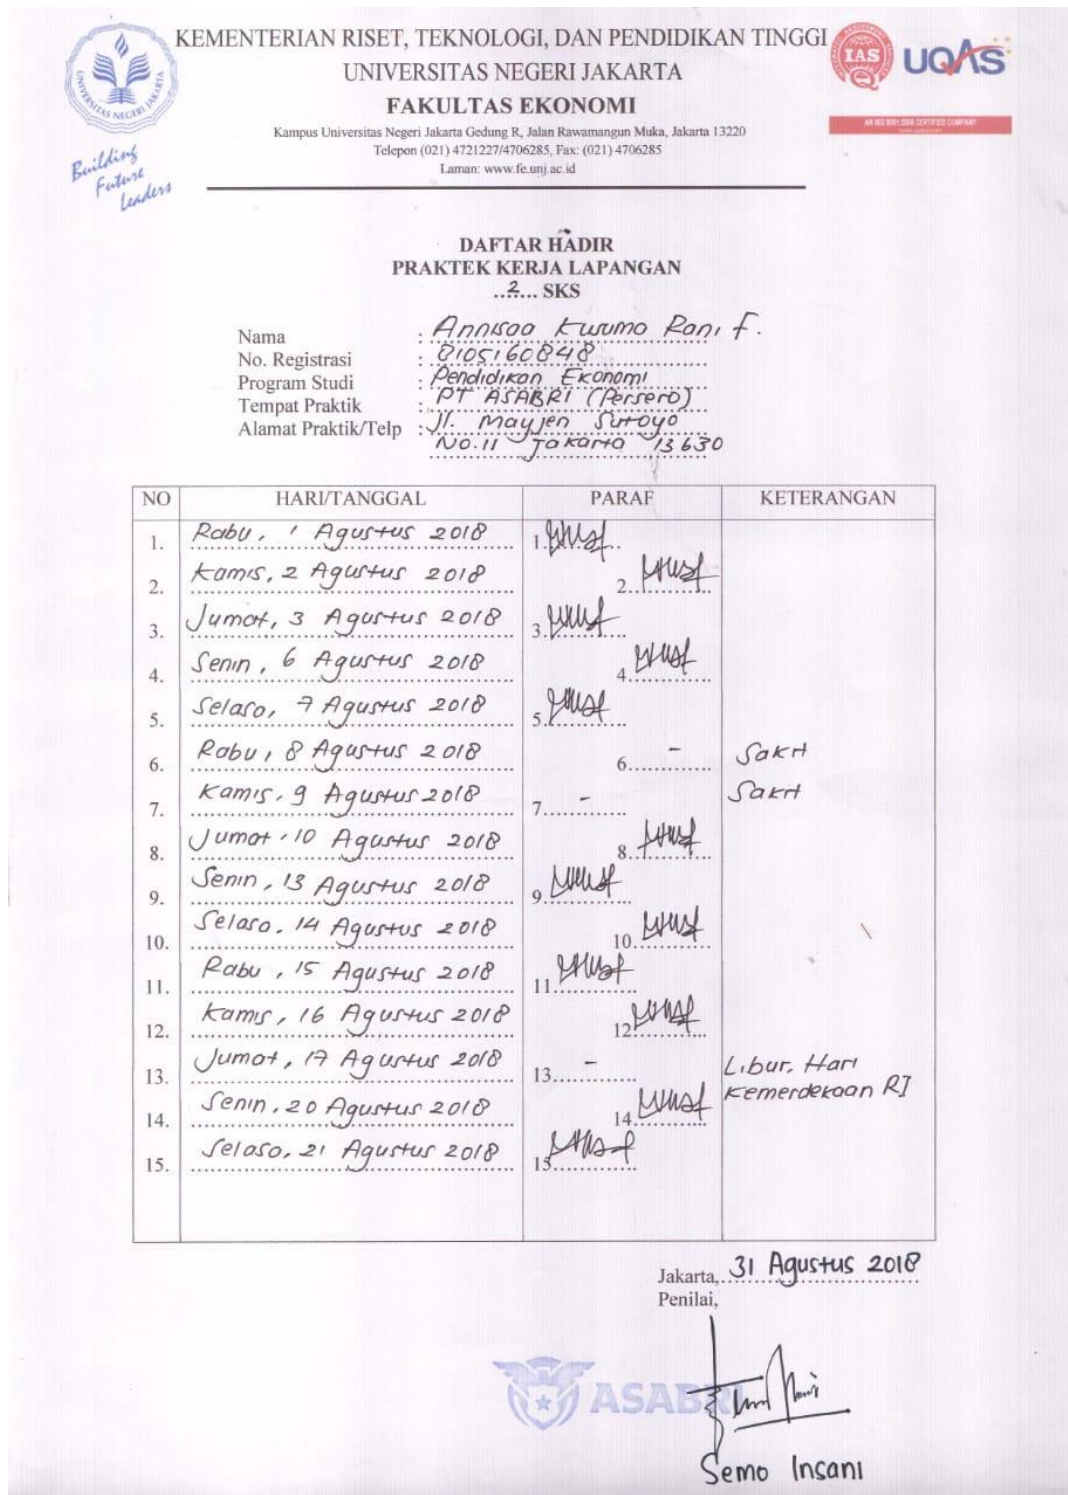 KEMENTERIAN RISET, TEKNOLOGI, DAN PENDIDIKAN TINGGI
UNIVERSITAS NEGERI JAKARTA
FAKULTAS EKONOMI
Kampus Universitas Negeri Jakarta Gedung R, Jalan Rawamangun Muka, Jakarta 13220
Telepon (021) 4721227/4706285, Fax: (021) 4706285
Laman: www.fe.unj.ac.id
UNIVERSITAS NEGERI JAKARTA
Building
Future
Leaders
IAS
UQAS
AN ISO 9001:2008 CERTIFIED COMPANY
DAFTAR HADIR
PRAKTEK KERJA LAPANGAN
..2... SKS
Nama : Annisaa Kusuma Rani F.
No. Registrasi : 8105160848
Program Studi : Pendidikan Ekonomi
Tempat Praktik : PT ASABRI (Persero)
Alamat Praktik/Telp : Jl. Mayjen Sutoyo
No.11 Jakarta 13630
NO HARI/TANGGAL PARAF KETERANGAN
1. Rabu, 1 Agustus 2018 1.
2. Kamis, 2 Agustus 2018 2.
3. Jumat, 3 Agustus 2018 3.
4. Senin, 6 Agustus 2018 4.
5. Selasa, 7 Agustus 2018 5.
6. Rabu, 8 Agustus 2018 6. - Sakit
7. Kamis, 9 Agustus 2018 7. - Sakit
8. Jumat, 10 Agustus 2018 8.
9. Senin, 13 Agustus 2018 9.
10. Selasa, 14 Agustus 2018 10.
11. Rabu, 15 Agustus 2018 11.
12. Kamis, 16 Agustus 2018 12.
13. Jumat, 17 Agustus 2018 13. - Libur, Hari
Kemerdekaan RI
14. Senin, 20 Agustus 2018 14.
15. Selasa, 21 Agustus 2018 15.
Jakarta, 31 Agustus 2018
Penilai,
ASABRI
Semo Insani